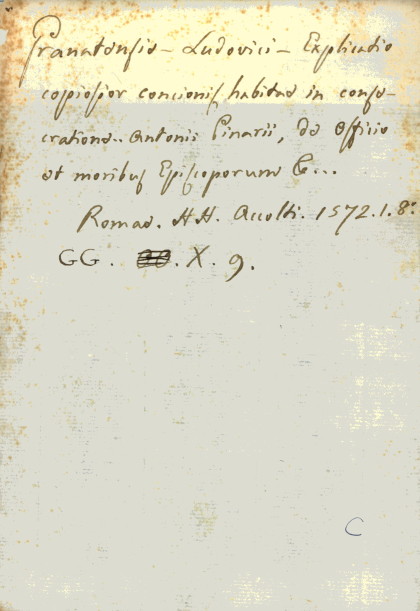 Granatensis - Ludovici - Explicatio
copiosior concionis habitae in conse-
cratione.. Antonii Pinarii, de officio
et moribus Episcoporum &...
Romae. HH. Accolti. 1572.1.8º
GG. X. 9.
C